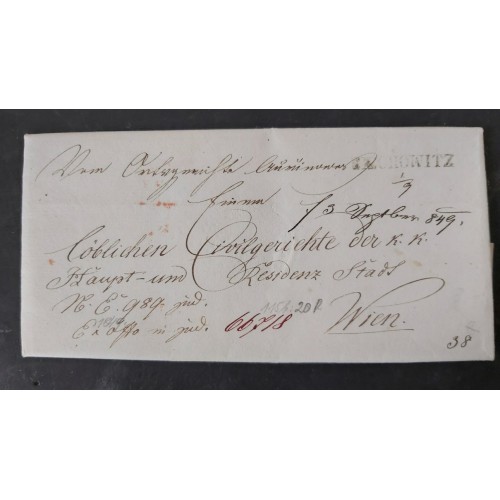 Vom Ortsgerichte
OWITZ
1/9
Einem
13 September 849.
Löblichen Civilgerichte der K. K.
Haupt- und Residenz Stadt
N. E. 989. jud.
Ex offo in jud.
66718
20
Wien.
38